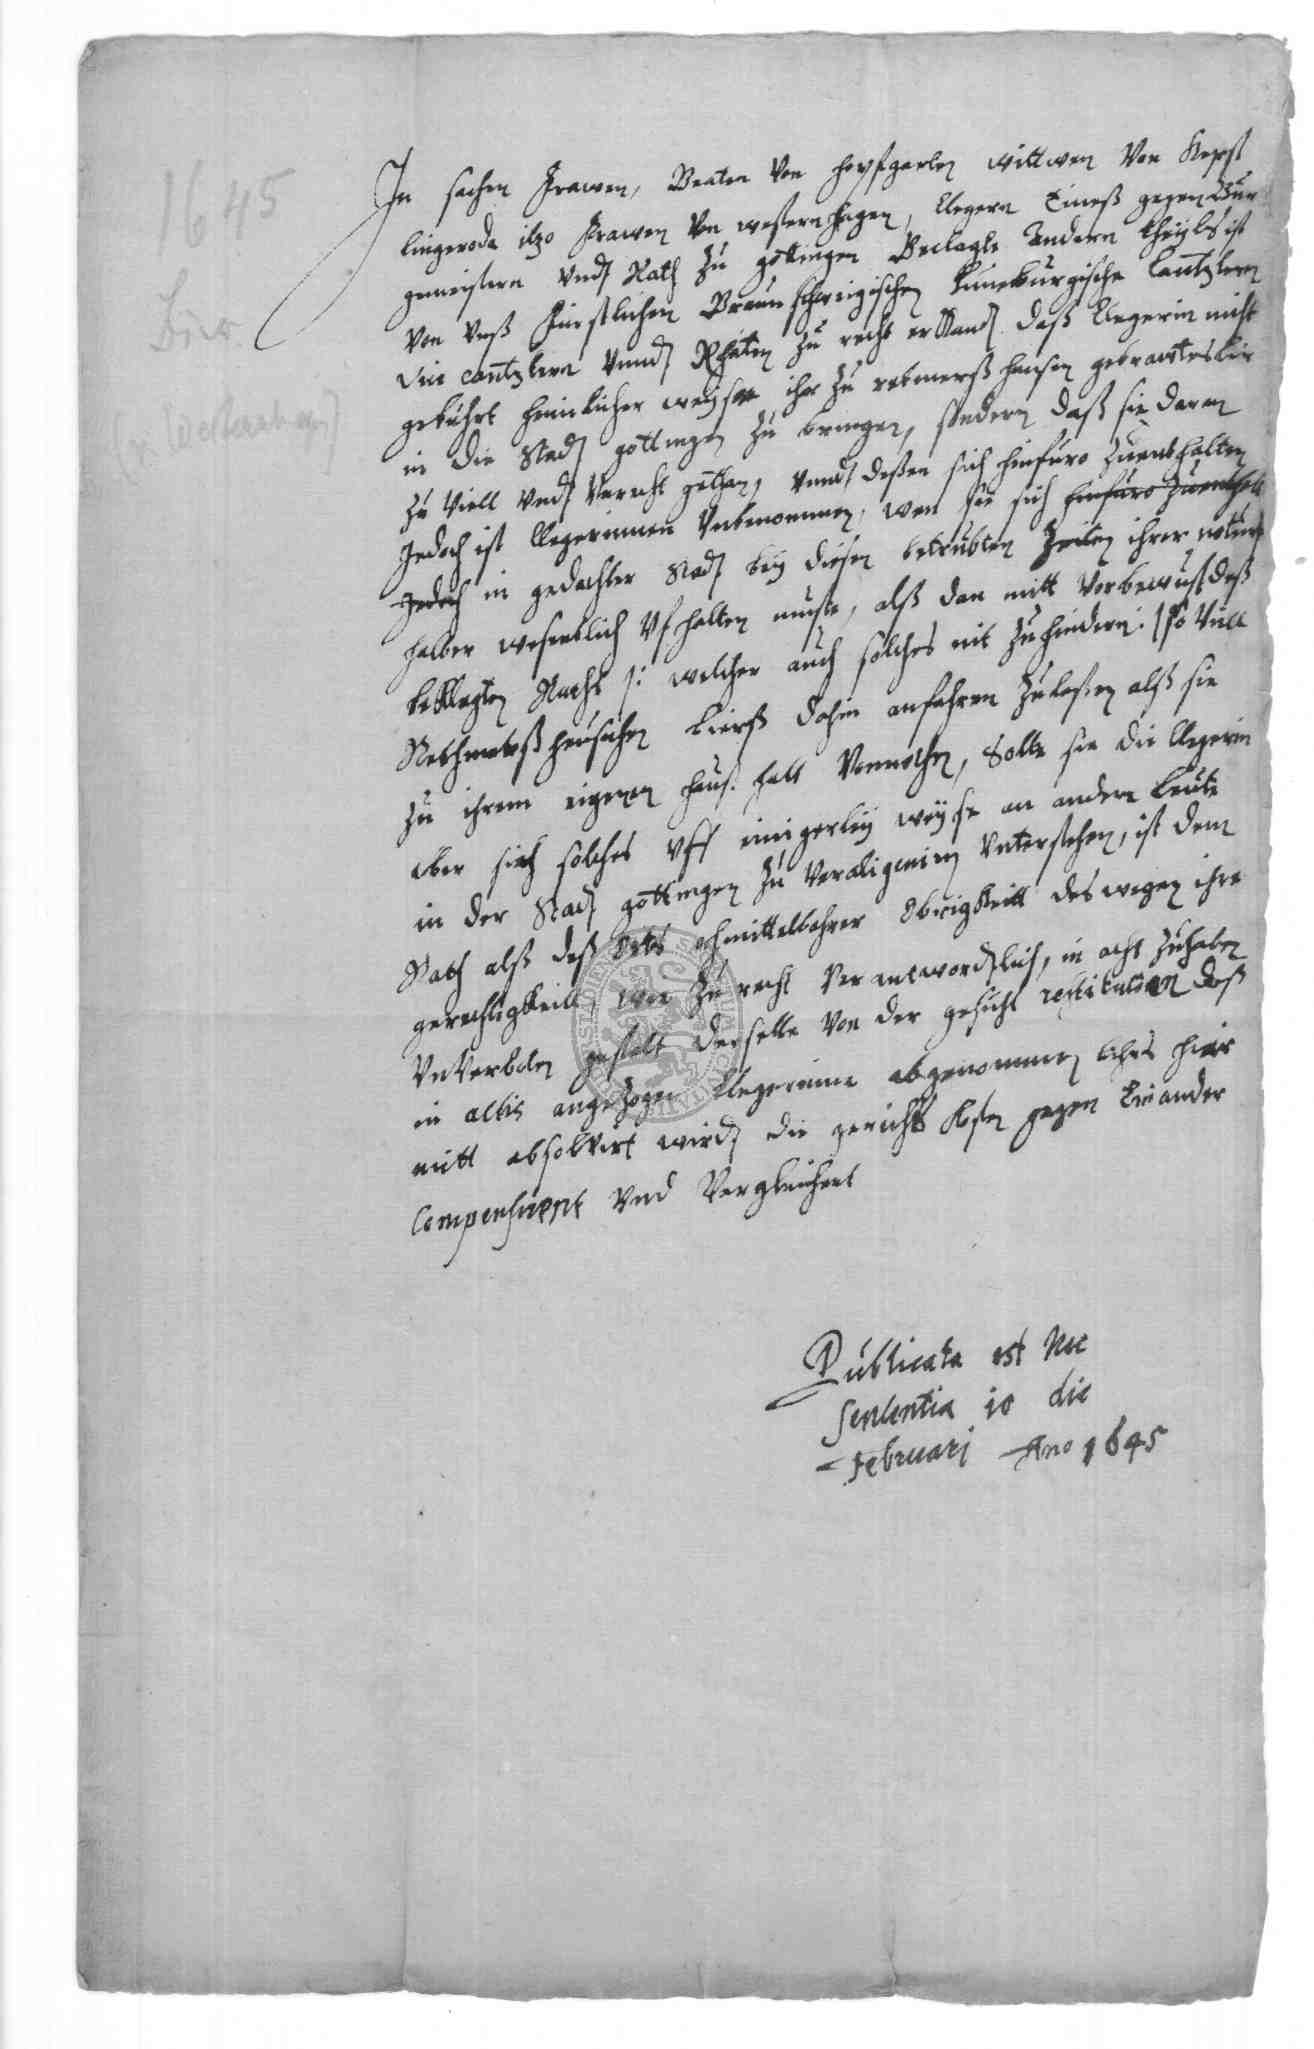 1645
Bier
In sachen Frawen, Beaten von Hopfgarten wittwen von Kerst
lingeroda itzo Frawen von westernhagen, Clegern Eineß gegen Bur
gemeistern undt Rath zu gottingen Beclagte Andern theylß ist
von unß Furstlichen Braunschweigischen Luneburgische Cantzlern
vice cantzlern unndt Rhäten zu recht erkandt daß Clegerin nicht
gebührt heimlicher weyse ihr zu rebmerßhausen gebrawtes bir
in die Stadt gottingen zu bringen, sondern daß sie daran
zu viell undt Unrecht gethan, unndt deßen sich hinfuro zuenthalten
Jedoch ist Clegerinnen Unbenommen, wan sie sich hinfuro zuenthalt
Jedoch in gedachter Stadt bey diesen betrubten Zeiten ihrer noturft
halber wesentlich ufhalten muste, alß dan mitt vorbewust deß
beklagten Raths /: welcher auch solches nit zu hindern :/ so viell
Rebhmerßheusischen bierß dahin anfahren zulaßen alß sie
zu ihrem eigenen haußhalt Vonnothen, Solte sie die Clegerin
aber sich solches uff einigerley weyse an andere Leute
in der Stadt gottingen zu veralieniren unterstehen, ist dem
Rath alß deß Orts ohmittelbahrer Obrigkeitt deswegen ihre
gerechtigkeitt, wie zu recht verantwordtlich, in acht zuhaben
unverboten gestalt derselbe von der gesucht restitution deß
in actis angezogen Clegerinne abgenommen birs hier
mitt absolvirt wirdt die gerichts Kosten gegen Einander
Compensirent und Vergleichent
Publicata est hec
Sententia 10 die
Februarj Ano 1645